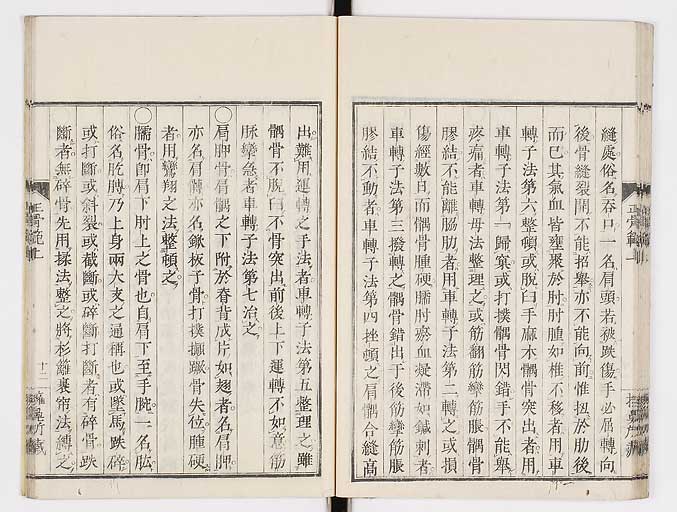 縫處俗名吞口一名肩頭若被跌傷手必屈轉向
後骨縫裂開不能招舉亦不能向前惟扭於肋後
而巳其氣血皆壅聚於肘肘腫如椎不移者用車
轉子法第六整頓或脫臼手麻木髃骨突出者用
車轉子法第一歸窠或打撲髃骨閃錯手不能舉
疼痛者車轉母法整理之或筋翻筋攣筋脹髃骨
膠結不能離脇肋者用車轉子法第二轉之或損
傷經數日而髃骨腫硬臑肘瘀血凝滯如鍼刺者
車轉子法第三撥轉之髃骨錯出于後筋攣筋脹
膠結不動者車轉子法第四挫頓之肩髃合縫高
出難用運轉之手法者車轉子法第五整理之雖
髃骨不脫臼不骨突出前後上下運轉不如意筋
脉攣急者車轉子法第七治之
○肩胛骨肩髃之下附於脊背成片如翅者名肩胛
亦名肩髆亦名鍬板子骨打撲攧蹶骨失位腫硬
者用鸞翔之法整頓之
○臑骨卽肩下肘上之骨也自肩下至手腕一名肱
俗名肐膊乃上身兩大支之通稱也或墜馬跌碎
或打斷或斜裂或截斷或碎斷打斷者有碎骨跌
斷者無碎骨先用揉法整之將杉籬裹帘法縛之
正骨範上
十二